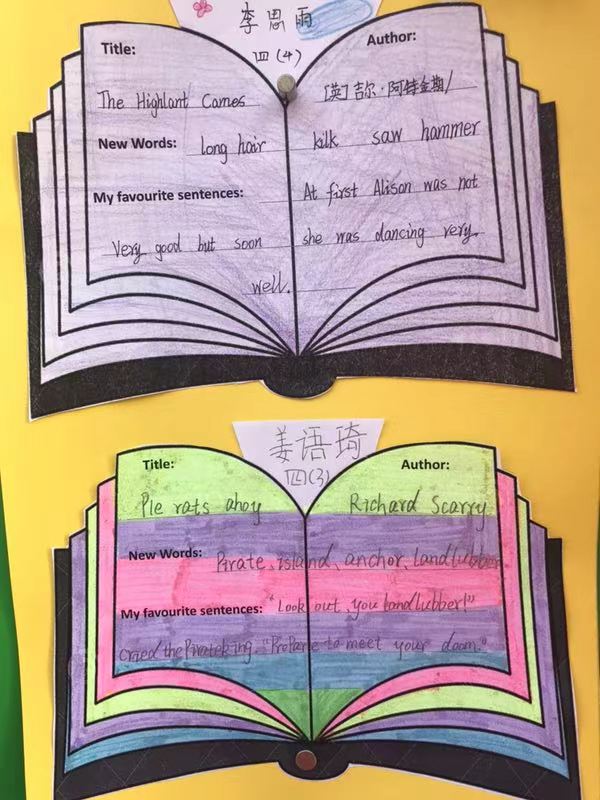 李思雨
四(4)
Title: Author:
The Highlant Cames [英]吉尔·阿特金斯/
New Words: long hair kilk saw hammer
My favourite sentences: At first Alison was not
Very good but soon she was dancing very
well.
姜语琦
四(3)
Title: Author:
Pie rats ahoy Richard Scarry
New Words: Pirate、island、anchor、landlubber
My favourite sentences: "Look out, you landlubber!"
Cried the Pirateking. "ProPare to meet your doom."